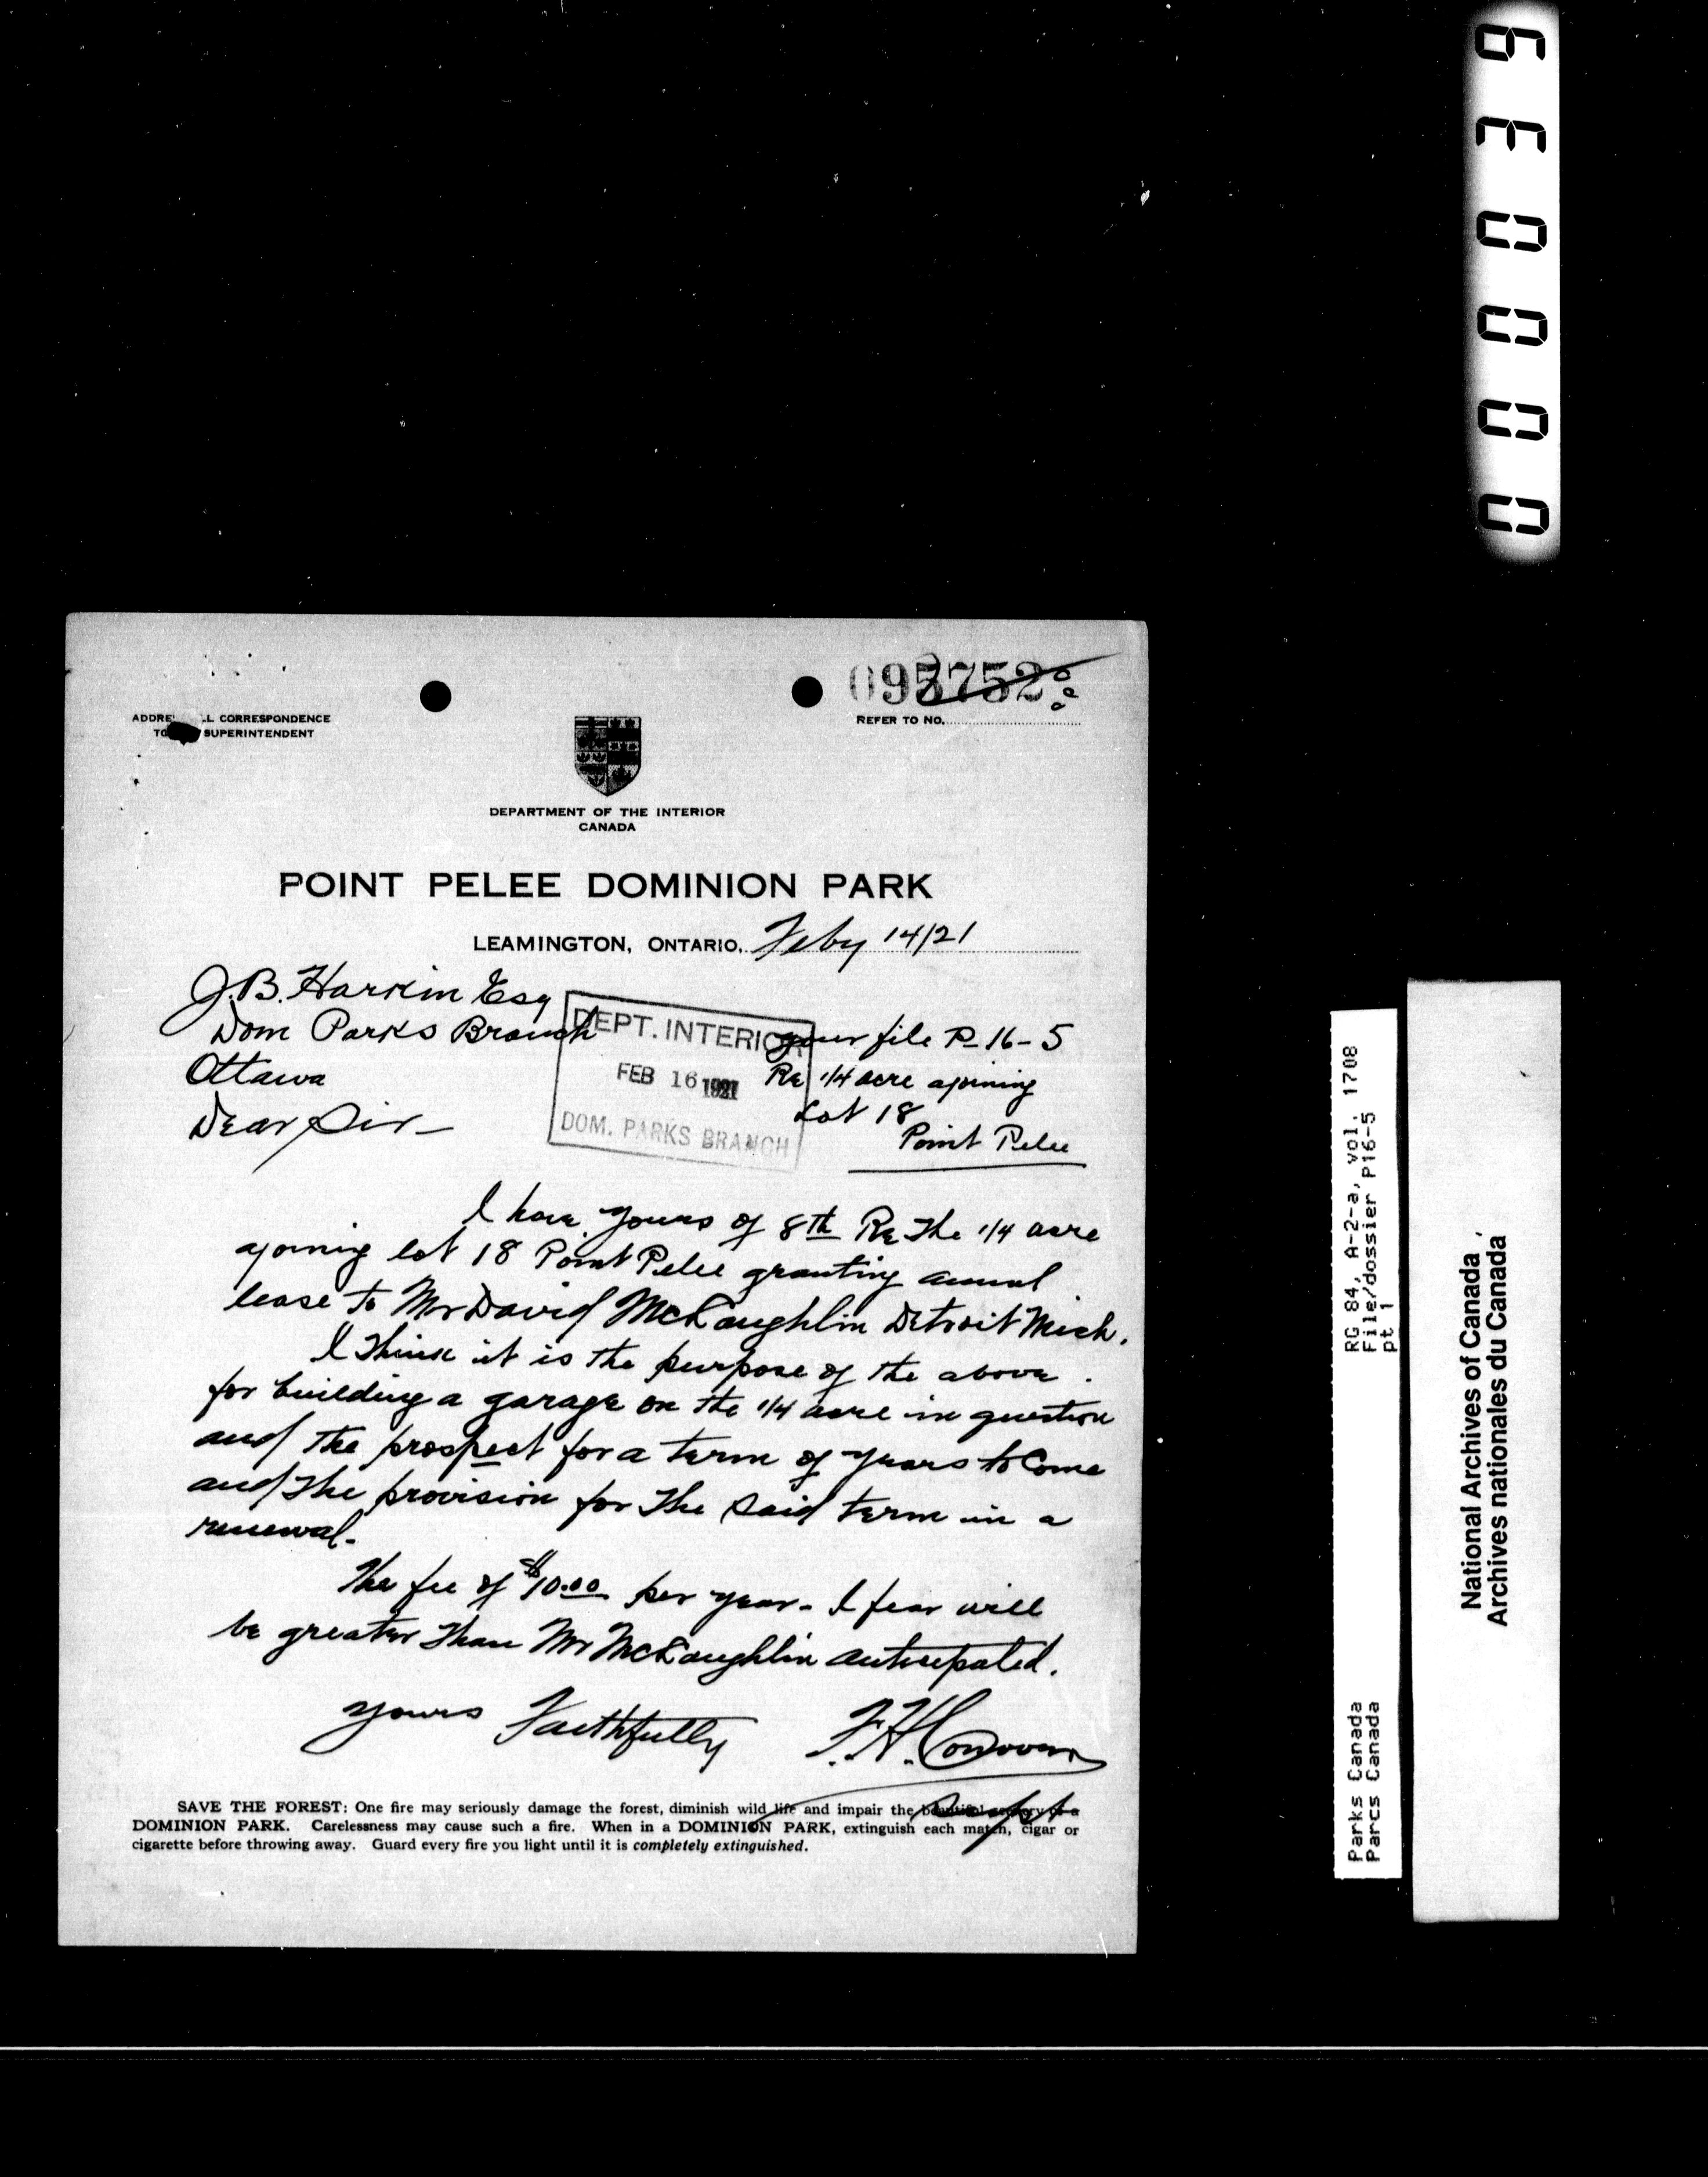 000039
REFER TO NO.
CORRESPONDENCE
SUPERINTENDENT
DEPARTMENT OF THE INTERIOR
CANADA
POINT PELEE DOMINION PARK
LEAMINGTON, ONTARIO, Feby 14/21
J.B. Harkin Esq
Dom Parks Branch
Ottawa
Dear Sir
DEPT. INTERIOR
FEB 16 1921
DOM. PARKS BRANCH
your file P-16-5
Re 1/4 acre ajoining
Lot 18
Point Pelee
I have yours of 8th Re The 1/4 acre
ajoining lot 18 Point Pelee granting annual
lease to Mr David McLaughlin Detroit Mich.
I think it is the purpose of the above
for building a garage on the 1/4 acre in question
and the prospect for a term of years to Come
and the provision for the said term in a
renewal.
The fee of $10.00 per year - I fear will
be greater than Mr McLaughlin anticipated.
yours Faithfully F.H. Conover
Supt
SAVE THE FOREST: One fire may seriously damage the forest, diminish wild life and impair the beautiful scenery of a
DOMINION PARK. Carelessness may cause such a fire. When in a DOMINION PARK, extinguish each match, cigar or
cigarette before throwing away. Guard every fire you light until it is completely extinguished.
RG 84, A-2-a, vol. 1708
File/dossier P16-5
pt 1
Parks Canada
Parcs Canada
National Archives of Canada
Archives nationales du Canada